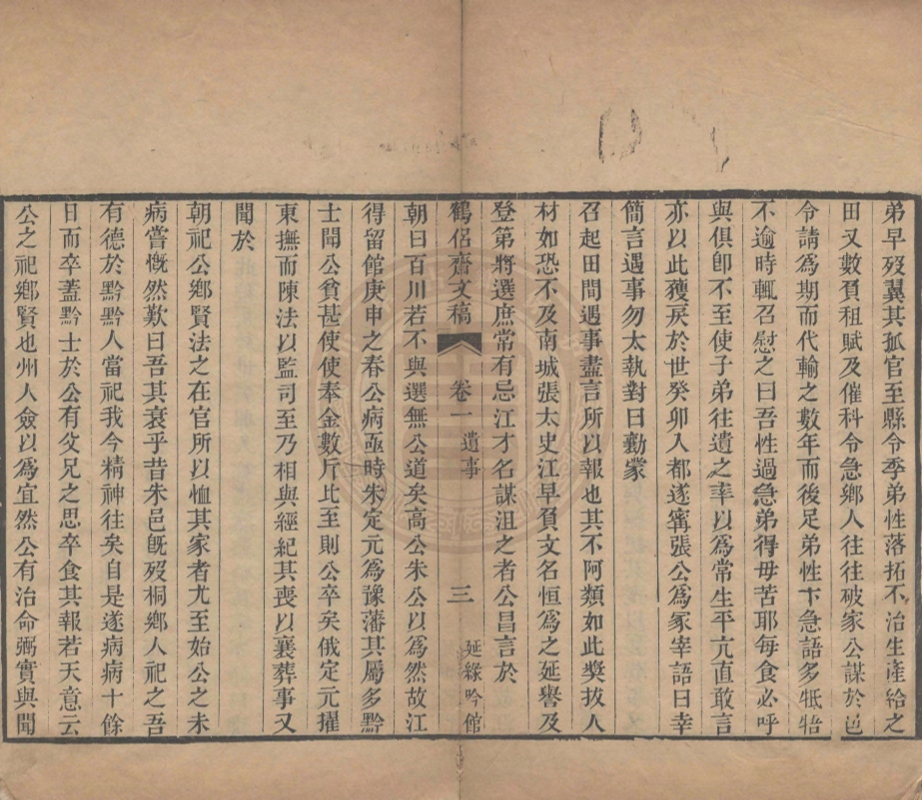 弟早歿翼其孤官至縣令季弟性落拓不治生產給之
田又數負租賦及催科令急鄉人往往破家公謀於邑
令請爲期而代輸之數年而後足弟性卞急語多牴牾
不逾時輒召慰之曰吾性過急弟得毋苦耶每食必呼
與俱卽不至使子弟往遺之率以爲常生平亢直敢言
亦以此獲戾於世癸卯入都遂寧張公爲冢宰語曰幸
簡言遇事勿太執對曰勷蒙
召起田間遇事盡言所以報也其不阿類如此獎拔人
材如恐不及南城張太史江早負文名恒爲之延譽及
登第將選庶常有忌江才名謀沮之者公昌言於
鶴侶齋文稿 卷一 遺事 三 延綠吟館
朝曰百川若不與選無公道矣高公朱公以爲然故江
得留館庚申之春公病亟時朱定元爲豫藩其屬多黔
士聞公貧甚使使奉金數斤比至則公卒矣俄定元擢
東撫而陳法以監司至乃相與經紀其喪以襄葬事又
聞於
朝祀公鄉賢法之在官所以恤其家者尤至始公之未
病嘗慨然歎曰吾其衰乎昔朱邑旣歿桐鄉人祀之吾
有德於黔黔人當祀我今精神往矣自是遂病病十餘
日而卒蓋黔士於公有父兄之思卒食其報若天意云
公之祀鄉賢也州人僉以爲宜然公有治命弼實與聞